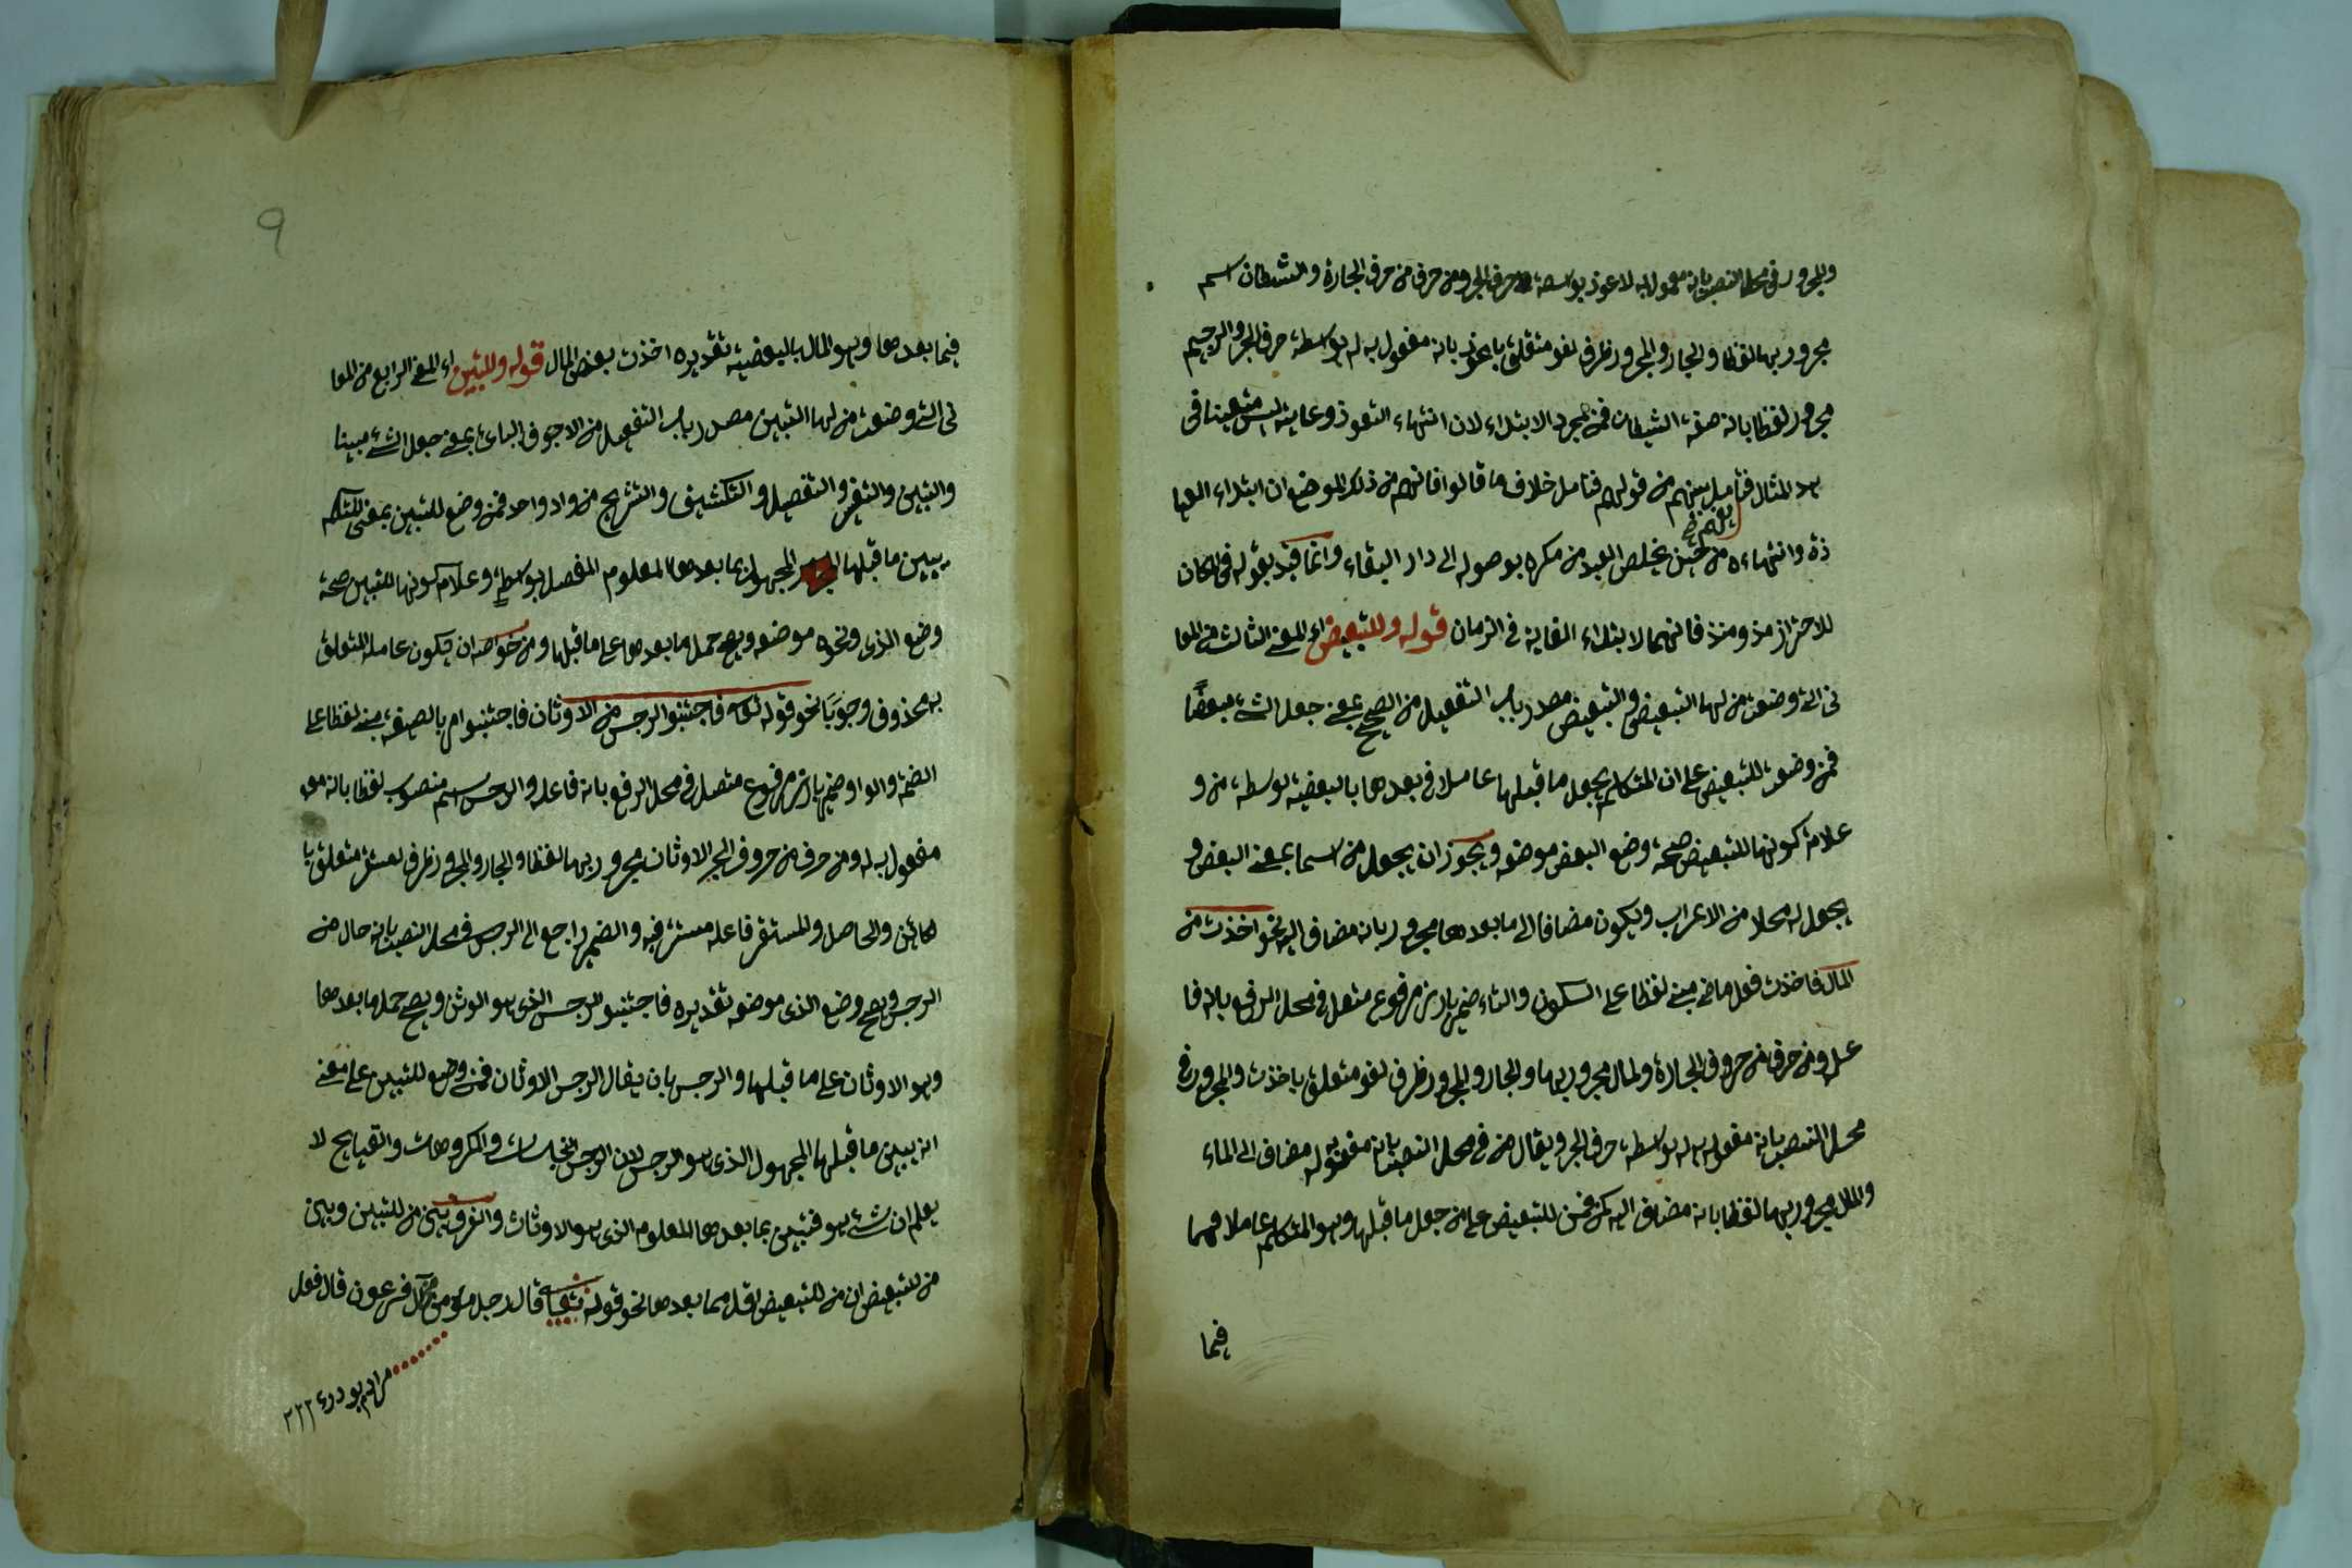 والمجرور في محل النصب بانه مفعول به لاعوذ بواسطة حرف الجر ومن حرف من حرف الجارة والشيطان اسم
مجرور بها لفظا والجار والمجرور ظرف لغو متعلق باعوذ بانه مفعول به له بواسطة حرف الجر والرجيم
مجرور لفظا بانه صفة الشيطان فمن لمجرد الابتداء لان انتهاء التعوذ وغايته ليس متعينا في
هذا المثال فتأمل من قولهم فتامل خلاف ما قالوا فانهم من ذلك الموضع ان ابتداء العيا
ذة وانتهاءه من حين يخلص العبد من مكره بوصوله الى دار البقاء وانما قيد بقوله في المكان
للاحتراز مذ ومنذ فانهما لابتداء الغاية في الزمان قوله وللتبعيض اى المعنى الثالث من المعا
نى التى وضعت من لها التبعيض والتبعيض مصدر باب التفعيل من الصحيح بمعنى جعل الشئ مبعضًا
فمن وضعت للتبعيض على ان المتكلم يجعل ما قبلها عاملا في بعدها بالبعضية بواسطة من و
علامة كونها للتبعيض صحة وضع البعض موضعه ويجوز ان يجعل من اسما بمعنى البعض و
يجعل له محلا من الاعراب ويكون مضافا الى ما بعدها مجرور بانه مضاف اليه نحو اخذت من
المال فاخذت فعل ماض مبنى لفظا على السكون والتاء ضمير بارز مرفوع متصل في محل الرفع بانه فا
عله ومن حرف من حروف الجارة والمال مجرور بها والجار والمجرور ظرف لغو متعلق باخذت والمجرور في
محل النصب بانه مفعول به له بواسطة حرف الجر ويقال من في محل النصب بانه مفعوله مضاف الى الماء
والمال مجرور بها لفظا بانه مضاف اليه لكن فمن للتبعيض على من جعل ما قبلها وهو المتكلم عاملا فيما
فيما
٩
فيما بعدها وهو المال بالبعضية تقديره اخذت بعض المال قوله وللتبيين اى المعنى الرابع من المعا
نى التى وضعت من لها التبيين مصدر باب التفعيل من الاجوف اليائ بمعنى جعل الشئ مبينا
والتبيين والتفسير والتفصيل والتكشيف والتشريح من واد واحد فمن وضع للتبيين بمعنى المتكلم
يبين ما قبلها المجهول بما بعدها المعلوم المفصل بواسطة وعلامة كونها للتبيين صحة
وضع الذى ونحوه موضعه ويصح حمل ما بعدها على ما قبلها ومن خواصه ان يكون عامله المتعلق
به محذوف وجوبًا نحو قوله تعالى فاجتنبوا الرجس من الاوثان فاجتنبوا امر بالصيغة مبنى لفظا على
الضمة والواو ضمير بارز مرفوع متصل في محل الرفع بانه فاعله والرجس اسم منصوب لفظا بانه مع
مفعول به له ومن حرف من حروف الجر الاوثان مجرور بها لفظا والجار والمجرور ظرف مستقر متعلق با
لكائن والحاصل والمستقر فاعله مستتر فيه والضمير راجع الى الرجس في محل النصب بانه حال من
الرجس ويصح وضع الذى موضعه تقديره فاجتنبوا الرجس الذى هو الوثن ويصح حمل ما بعدها
وهو الاوثان على ما قبلها والرجس بان يقال الرجس الاوثان فمن وضع للتبيين على معنى
انه يبين ما قبلها المجهول الذى هو الرجس لان الرجس النجاسات والمكروهات والقبايح لا
يعلم ان شئ هو فتبين بما بعدها المعلوم الذى هو الاوثان والفرق بين من للتبيين وبين
من للتبعيض ان من للتبعيض اقل مما بعدها نحو قوله تعالى قال رجل مؤمن من آل فرعون قال فعل